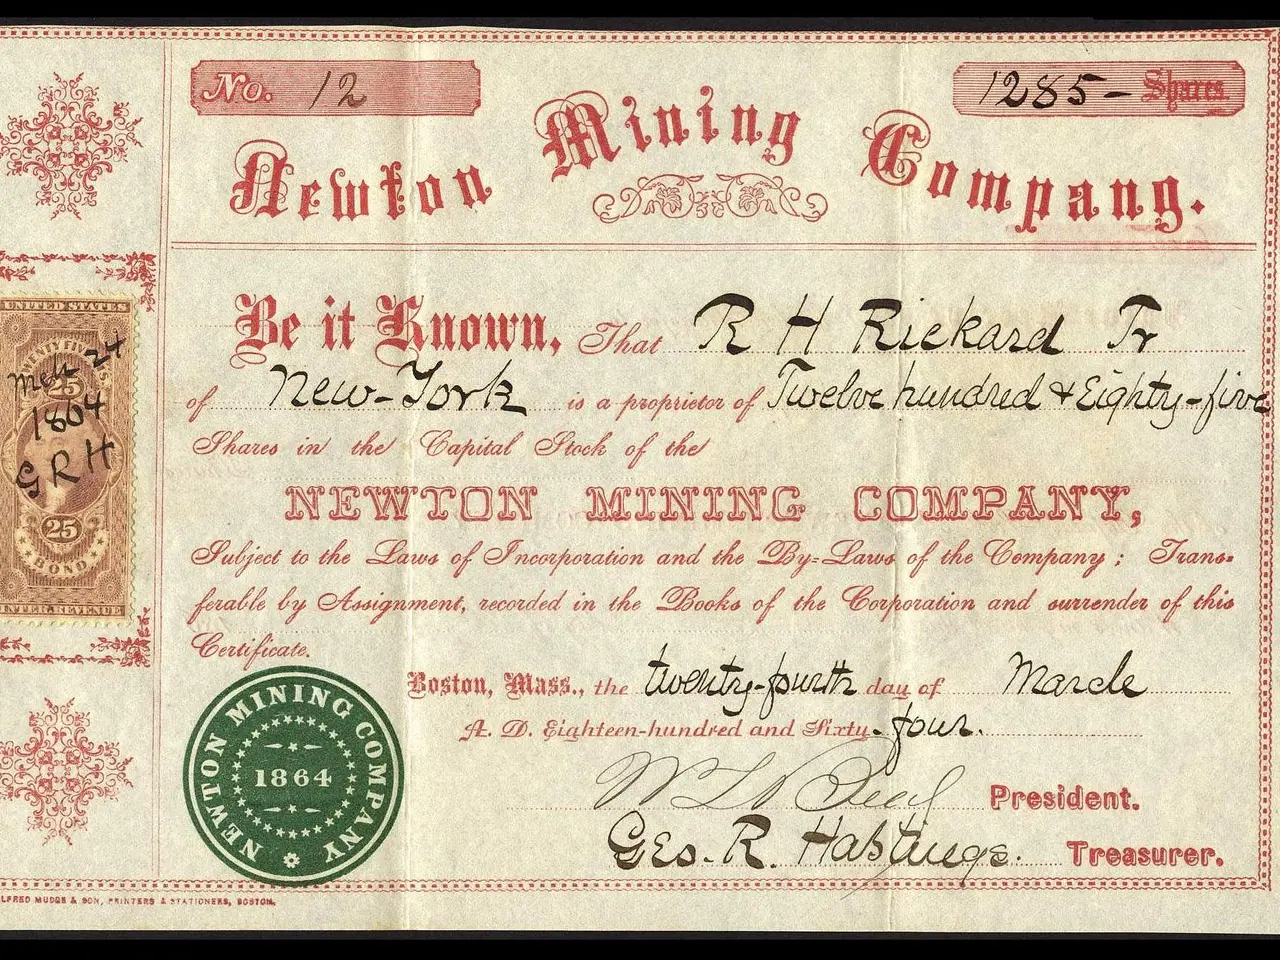 No. 12
1285- Shares
Newton Mining Company.
Be it Known, That R H Rickard Tr
of New-York is a proprietor of Twelve hundred & Eighty-five
Shares in the Capital Stock of the
NEWTON MINING COMPANY,
Subject to the Laws of Incorporation and the By-Laws of the Company; Trans-
ferable by Assignment, recorded in the Books of the Corporation and surrender of this
Certificate.
Boston, Mass., the twenty-fourth day of March
A. D. Eighteen-hundred and Sixty-four.
President.
Geo. R. Hastings. Treasurer.
NEWTON MINING COMPANY
1864
UNITED STATES
TWENTY FIVE
25
Mch 24
1864
GRH
25
BOND
INTER. REVENUE
LFRED MUDGE & SON, PRINTERS & STATIONERS, BOSTON.